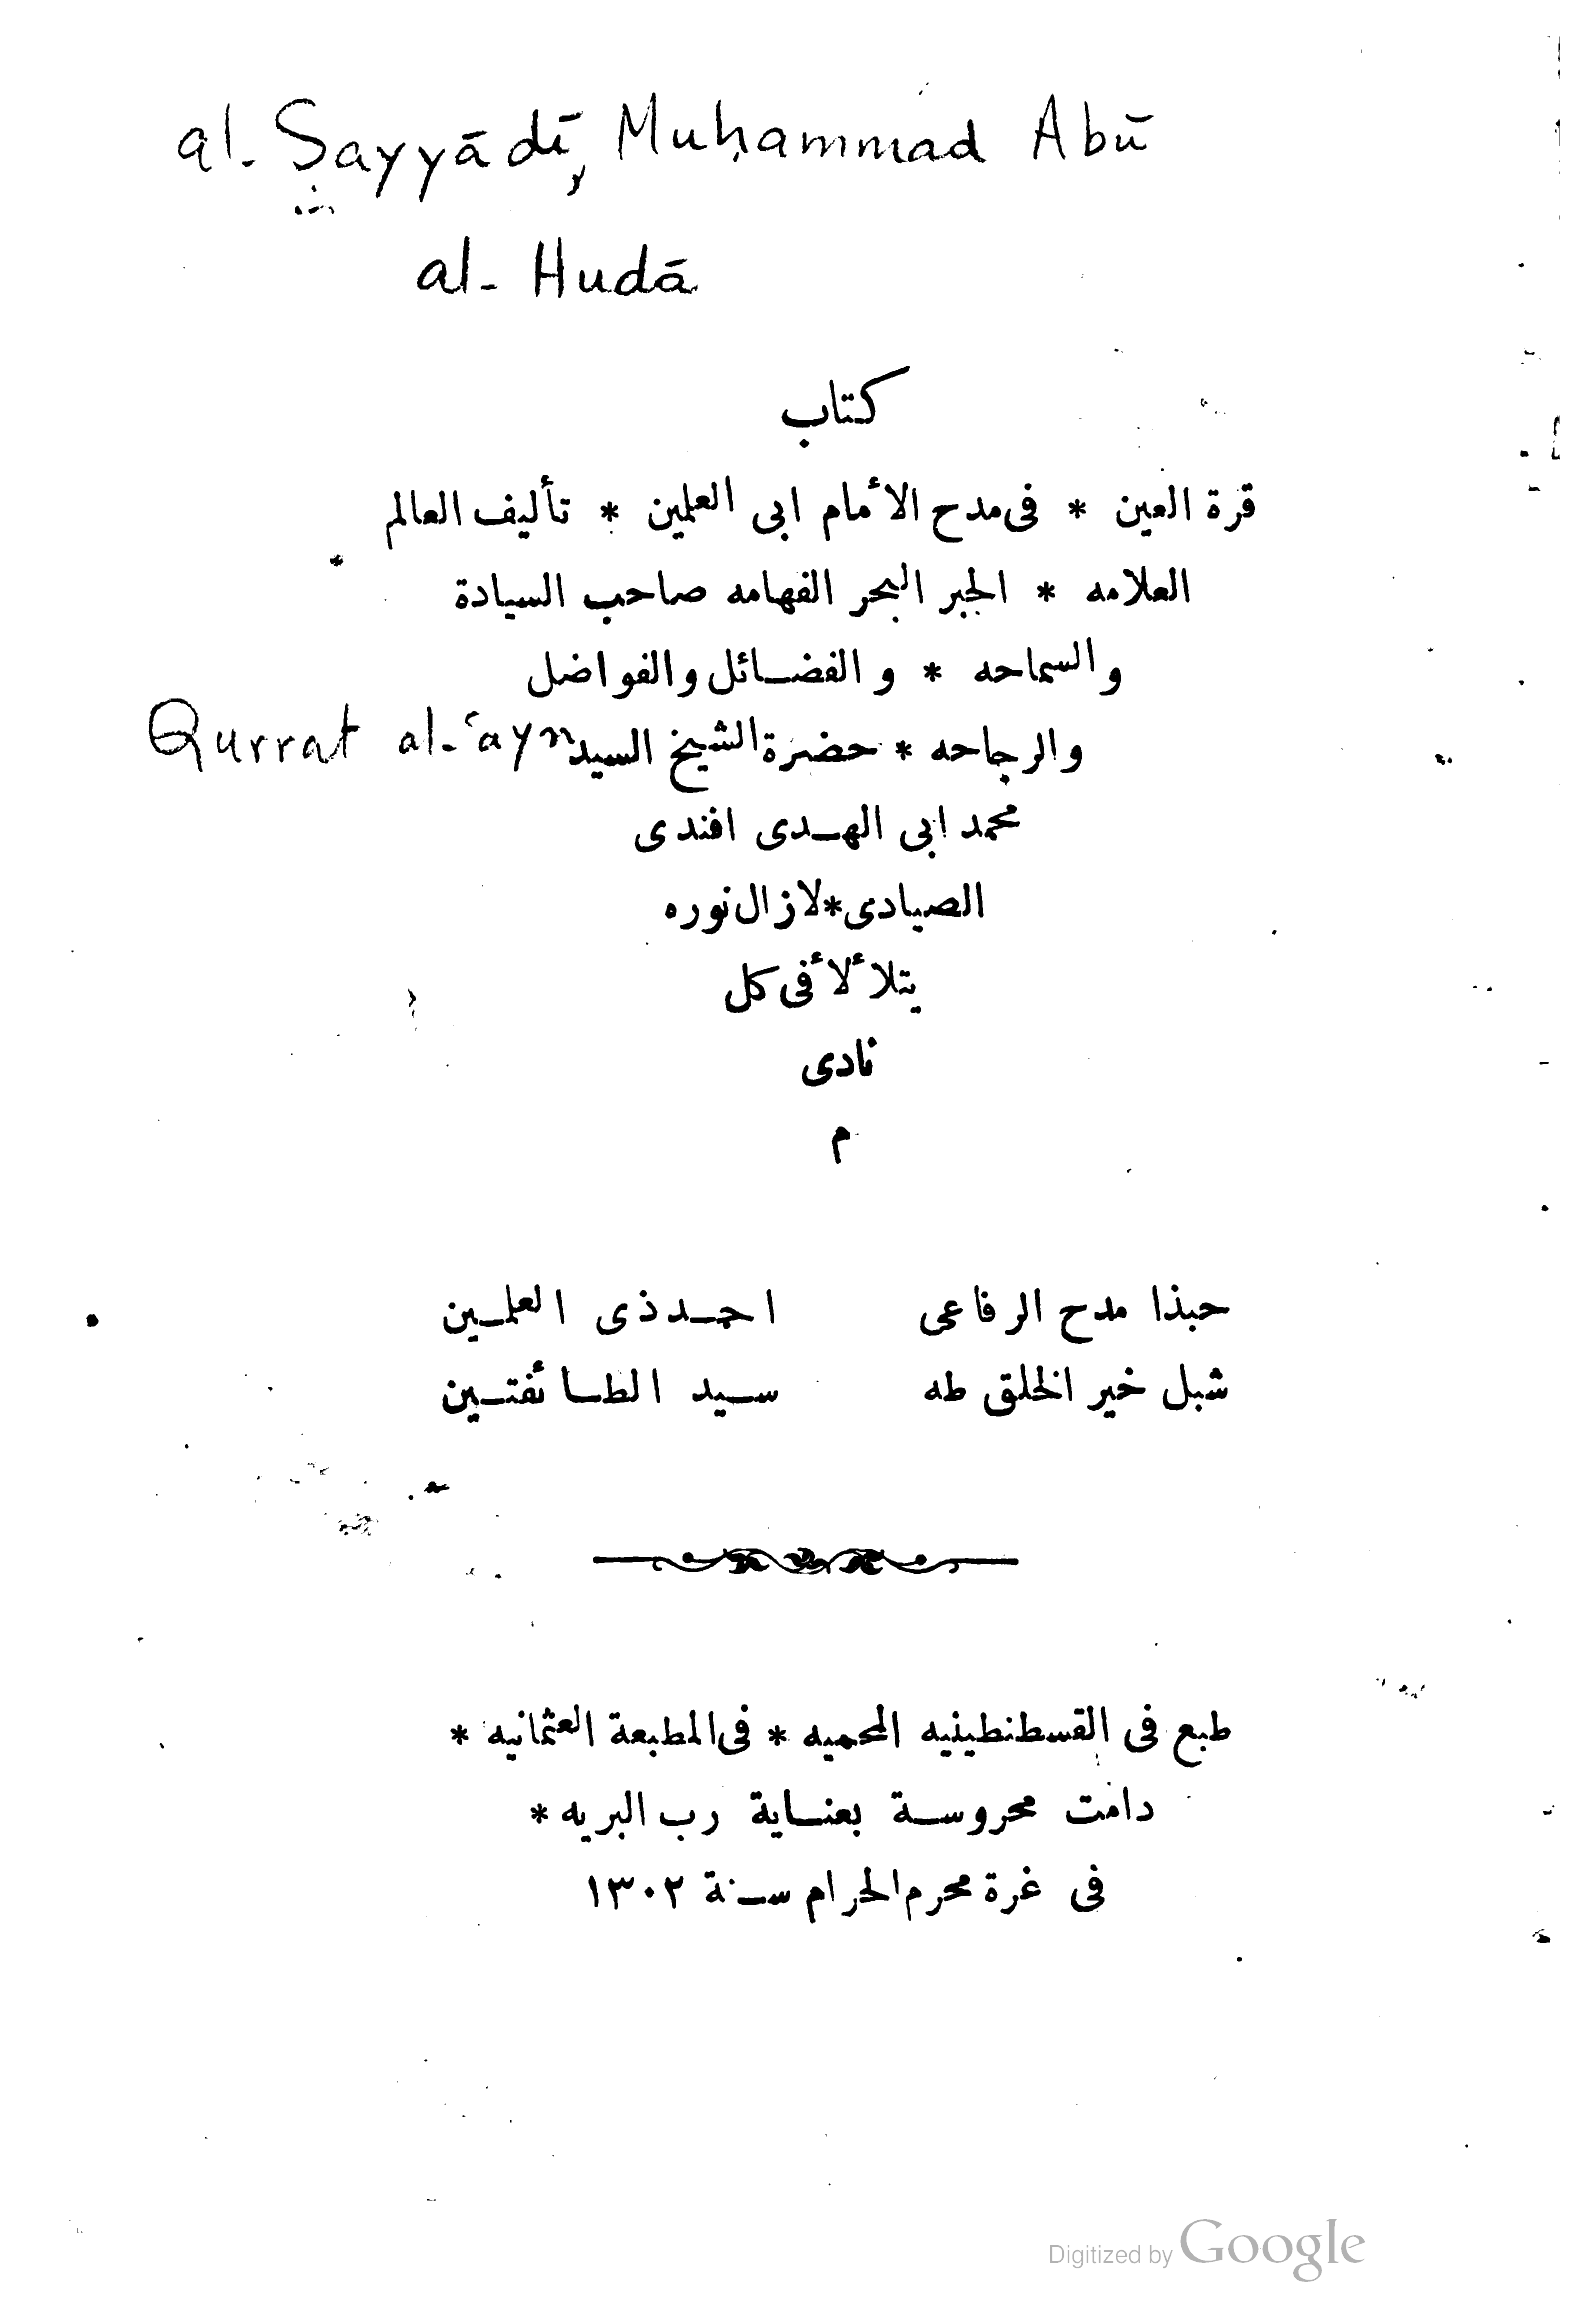 al-Ṣayyādī, Muḥammad Abū
al-Hudā
كتاب
قرة العين * فى مدح الأمام ابى العلمين * تأليف العالم
العلامه * الحبر البحر الفهامه صاحب السيادة
والسماحه * والفضائل والفواضل
والرجاحه * حضرة الشيخ السيد
Qurrat al-ʿayn
محمد ابى الهدى افندى
الصيادى * لازال نوره
يتلأ لأ فى كل
نادى
م
حبذا مدح الرفاعى احمد ذى العلمين
شبل خير الخلق طه سيد الطائفتين
طبع فى القسطنطينيه المحميه * فى المطبعة العثمانيه *
دامت محروسة بعناية رب البريه *
فى غرة محرم الحرام سنة ١٣٠٢
Digitized by Google